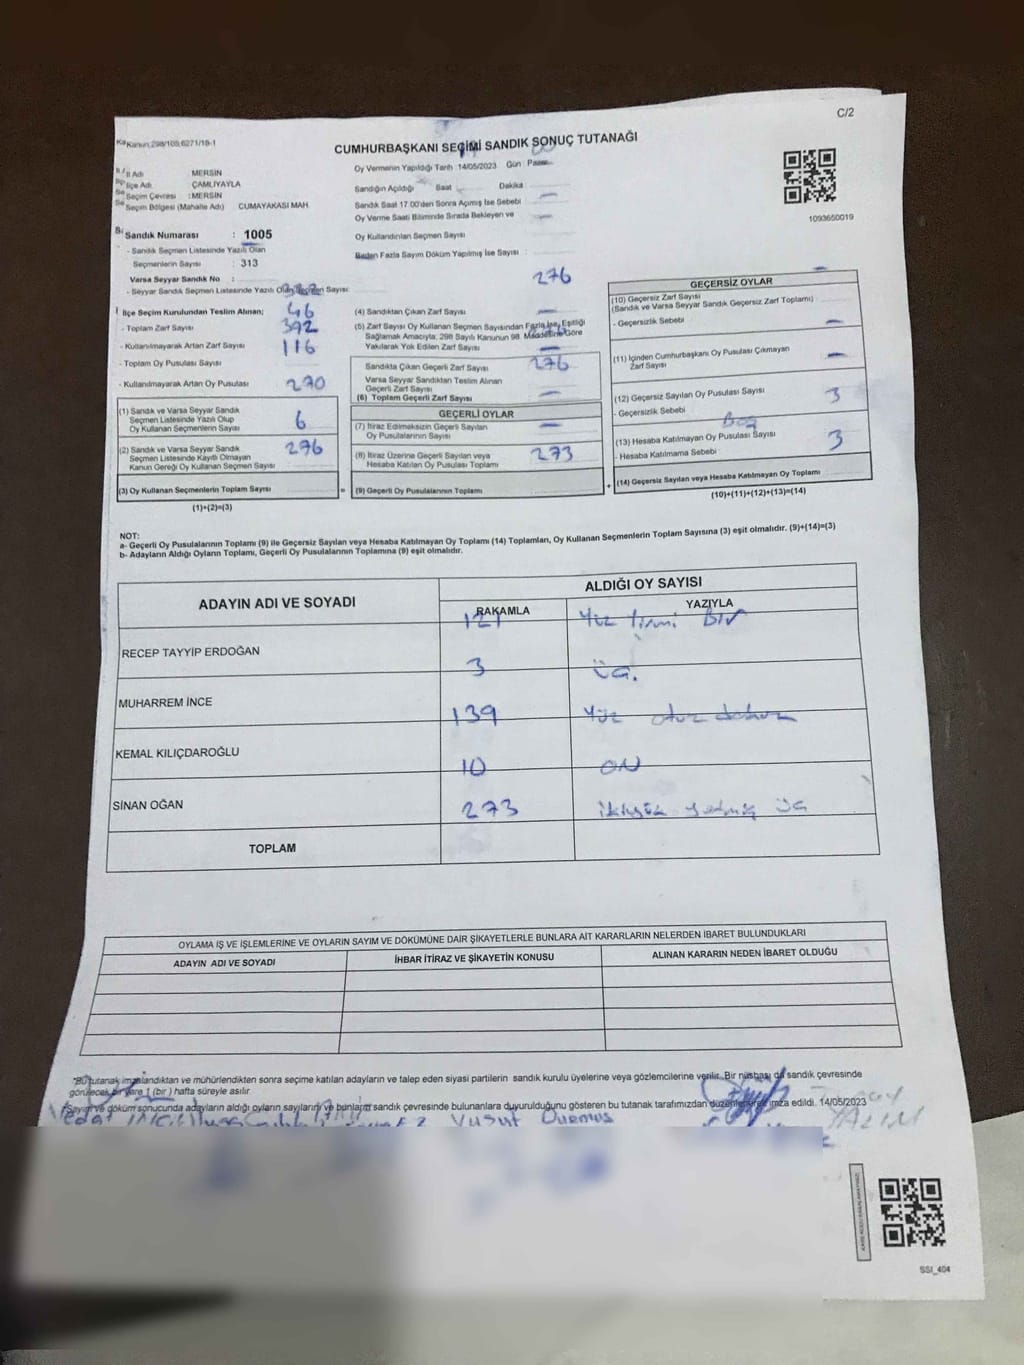 C/2
Kanun:298/105,6271/18-1
CUMHURBAŞKANI SEÇİMİ SANDIK SONUÇ TUTANAĞI
İl Adı MERSİN
İlçe Adı ÇAMLIYAYLA
Seçim Çevresi :MERSİN
Seçim Bölgesi (Mahalle Adı) CUMAYAKASI MAH.
Sandık Numarası : 1005
- Sandık Seçmen Listesinde Yazılı Olan
Seçmenlerin Sayısı : 313
Varsa Seyyar Sandık No :
- Seyyar Sandık Seçmen Listesinde Yazılı Olan Seçmen Sayısı:
Oy Vermenin Yapıldığı Tarih :14/05/2023 Gün : Pazar
Sandığın Açıldığı Saat Dakika
Sandık Saat 17.00'den Sonra Açımış İse Sebebi
Oy Verme Saati Bitiminde Sırada Bekleyen ve
Oy Kullandırılan Seçmen Sayısı
Birden Fazla Sayım Döküm Yapılmış İse Sayısı :
1093650019
276
İlçe Seçim Kurulundan Teslim Alınan; 46
- Toplam Zarf Sayısı 392
- Kullanılmayarak Artan Zarf Sayısı 116
- Toplam Oy Pusulası Sayısı
- Kullanılmayarak Artan Oy Pusulası 270
(1) Sandık ve Varsa Seyyar Sandık
Seçmen Listesinde Yazılı Olup
Oy Kullanan Seçmenlerin Sayısı 6
(2) Sandık ve Varsa Seyyar Sandık
Seçmen Listesinde Kayıtlı Olmayan
Kanun Gereği Oy Kullanan Seçmen Sayısı 276
(3) Oy Kullanan Seçmenlerin Toplam Sayısı
(1)+(2)=(3)
(4) Sandıktan Çıkan Zarf Sayısı
(5) Zarf Sayısı Oy Kullanan Seçmen Sayısından Fazla İse, Eşitliği
Sağlamak Amacıyla, 298 Sayılı Kanunun 98. Maddesine Göre
Yakılarak Yok Edilen Zarf Sayısı
Sandıkta Çıkan Geçerli Zarf Sayısı 276
Varsa Seyyar Sandıktan Teslim Alınan
Geçerli Zarf Sayısı
(6) Toplam Geçerli Zarf Sayısı
GEÇERLİ OYLAR
(7) İtiraz Edilmeksizin Geçerli Sayılan
Oy Pusulalarının Sayısı
(8) İtiraz Üzerine Geçerli Sayılan veya
Hesaba Katılan Oy Pusulası Toplamı 273
= (9) Geçerli Oy Pusulalarının Toplamı
GEÇERSİZ OYLAR
(10) Geçersiz Zarf Sayısı
(Sandık ve Varsa Seyyar Sandık Geçersiz Zarf Toplamı)
- Geçersizlik Sebebi
(11) İçinden Cumhurbaşkanı Oy Pusulası Çıkmayan
Zarf Sayısı
(12) Geçersiz Sayılan Oy Pusulası Sayısı 3
- Geçersizlik Sebebi
Boş
(13) Hesaba Katılmayan Oy Pusulası Sayısı 3
- Hesaba Katılmama Sebebi
+ (14) Geçersiz Sayılan veya Hesaba Katılmayan Oy Toplamı
(10)+(11)+(12)+(13)=(14)
NOT:
a- Geçerli Oy Pusulalarının Toplamı (9) ile Geçersiz Sayılan veya Hesaba Katılmayan Oy Toplamı (14) Toplamları, Oy Kullanan Seçmenlerin Toplam Sayısına (3) eşit olmalıdır. (9)+(14)=(3)
b- Adayların Aldığı Oyların Toplamı, Geçerli Oy Pusulalarının Toplamına (9) eşit olmalıdır.
ADAYIN ADI VE SOYADI ALDIĞI OY SAYISI
RAKAMLA YAZIYLA
121 Yüz Yirmi Bir
RECEP TAYYİP ERDOĞAN
3 üç.
MUHARREM İNCE
139 Yüz otuz dokuz
KEMAL KILIÇDAROĞLU
10 ON
SİNAN OĞAN
273 ikiyüz yetmiş üç
TOPLAM
OYLAMA İŞ VE İŞLEMLERİNE VE OYLARIN SAYIM VE DÖKÜMÜNE DAİR ŞİKAYETLERLE BUNLARA AİT KARARLARIN NELERDEN İBARET BULUNDUKLARI
ADAYIN ADI VE SOYADI İHBAR İTİRAZ VE ŞİKAYETİN KONUSU ALINAN KARARIN NEDEN İBARET OLDUĞU
*Bu tutanak imzalandıktan ve mühürlendikten sonra seçime katılan adayların ve talep eden siyasi partilerin sandık kurulu üyelerine veya gözlemcilerine verilir. Bir nüshası da sandık çevresinde
görülecek bir yere 1 (bir ) hafta süreyle asılır.
*Sayım ve döküm sonucunda adayların aldığı oyların sayılarını ve bunların sandık çevresinde bulunanlara duyurulduğunu gösteren bu tutanak tarafımızdan düzenlenerek imza edildi. 14/05/2023
Yusuf
YALIM
SSI_404